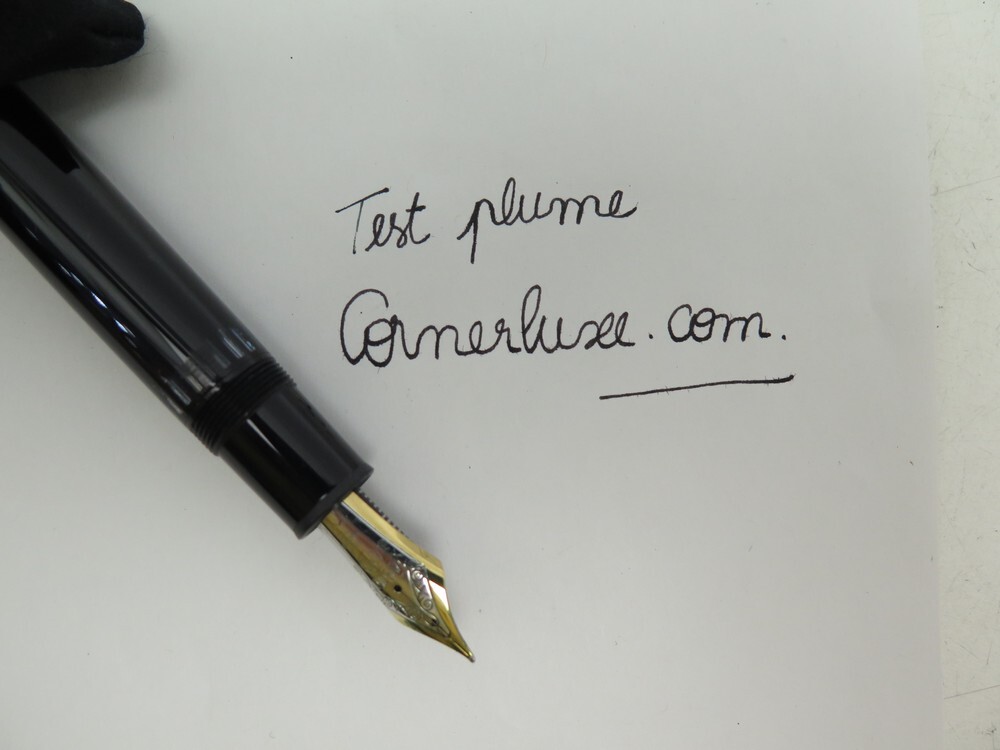 Test plume
Cornerluxe.com.